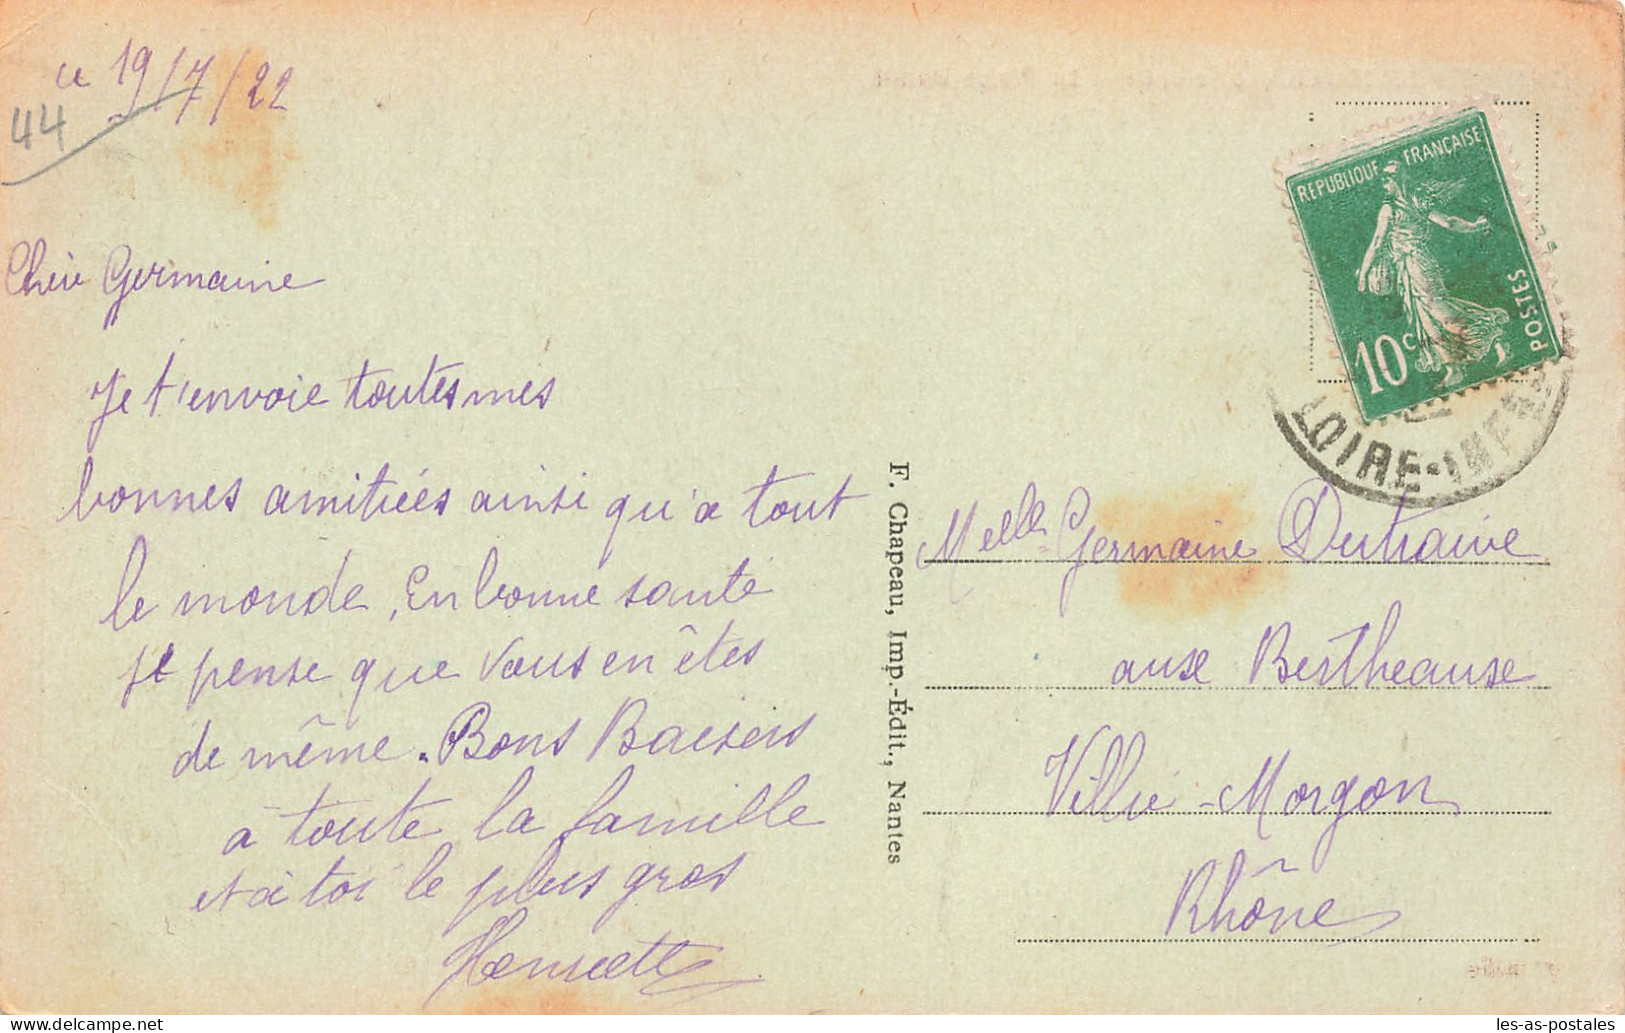 ce 19/7/22
44
Chère Germaine
Je t'envoie toutes mes
bonnes amitiées ainsi qu'a tout
le monde, En bonne santé
je pense que vous en êtes
de même. Bons Baisers
à toute la famille
et à toi le plus gros
Henriette
F. Chapeau, Imp.-Édit., Nantes
REPUBLIQUE FRANÇAISE
10c
POSTES
LOIRE-INFRE
Melle Germaine Dutraive
aux Bertheause
Villié-Morgon
Rhône
les-as-postales
delcampe.net